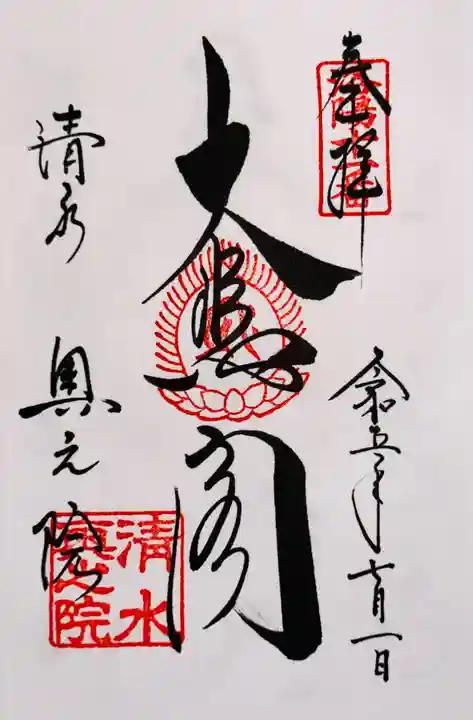 奉拝
大悲閣
令和五年
月一日
清水 奥之院
清水
奥之院